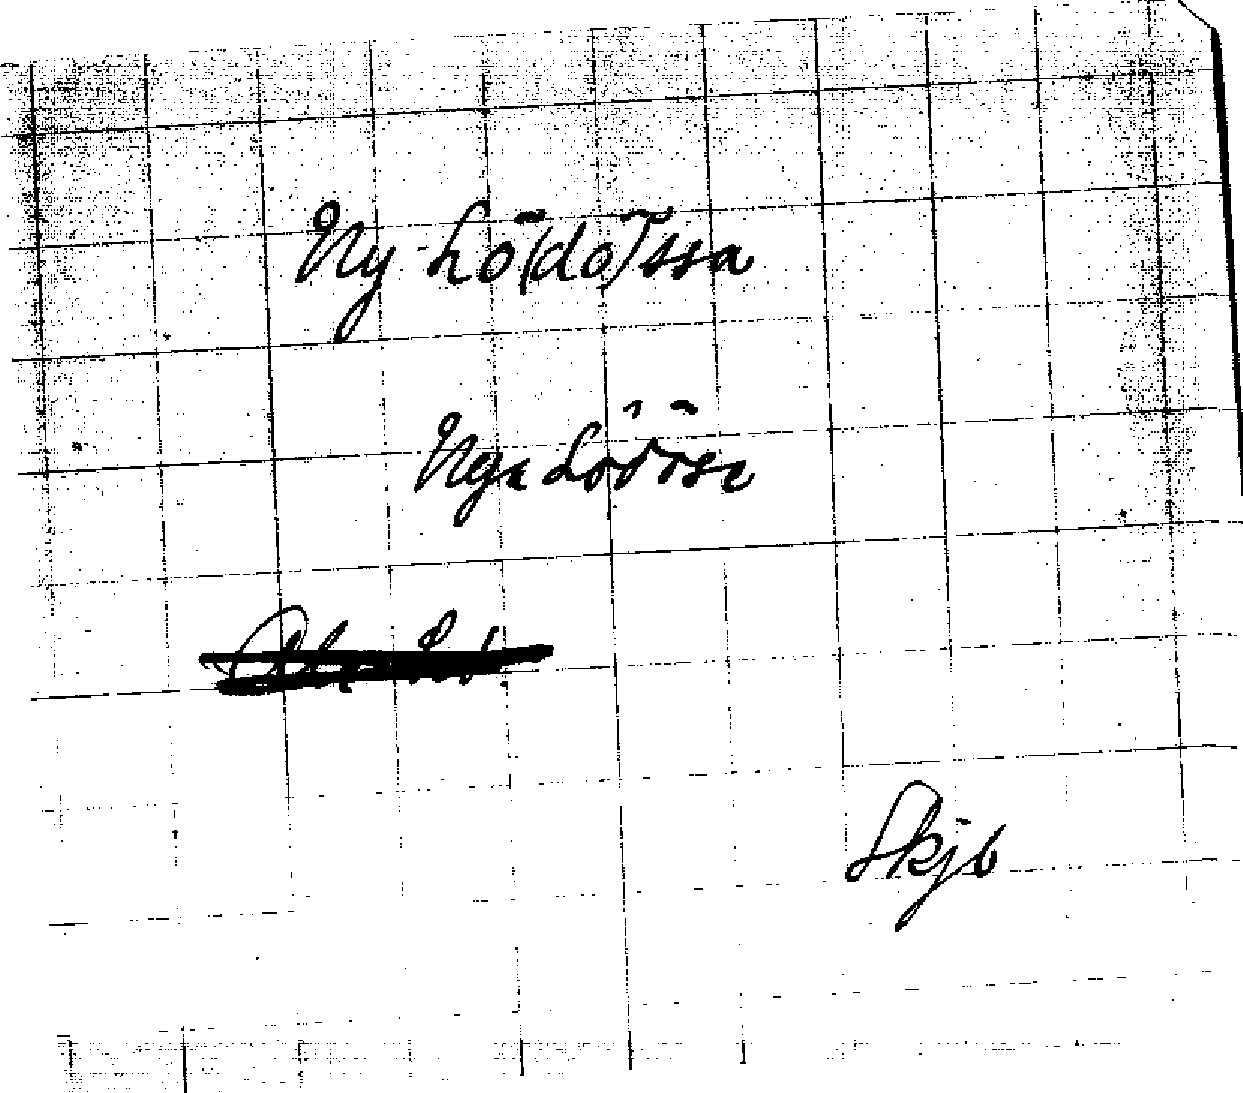 Ny-Lö(dö)ssa
Nya Lödöse
Skjb